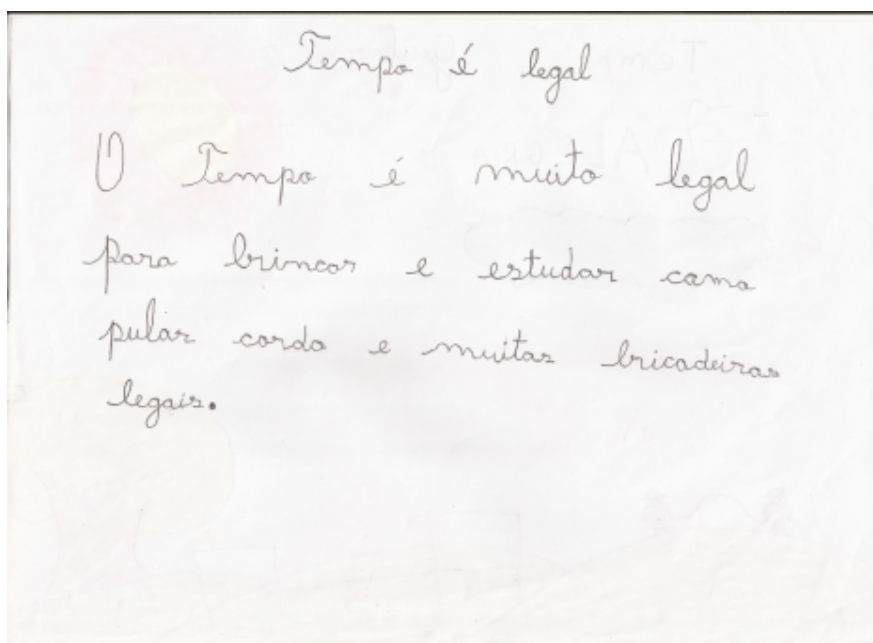 Tempo é legal
O Tempo é muito legal
para brincar e estudar como
pular corda e muitas bricadeiras
legais.